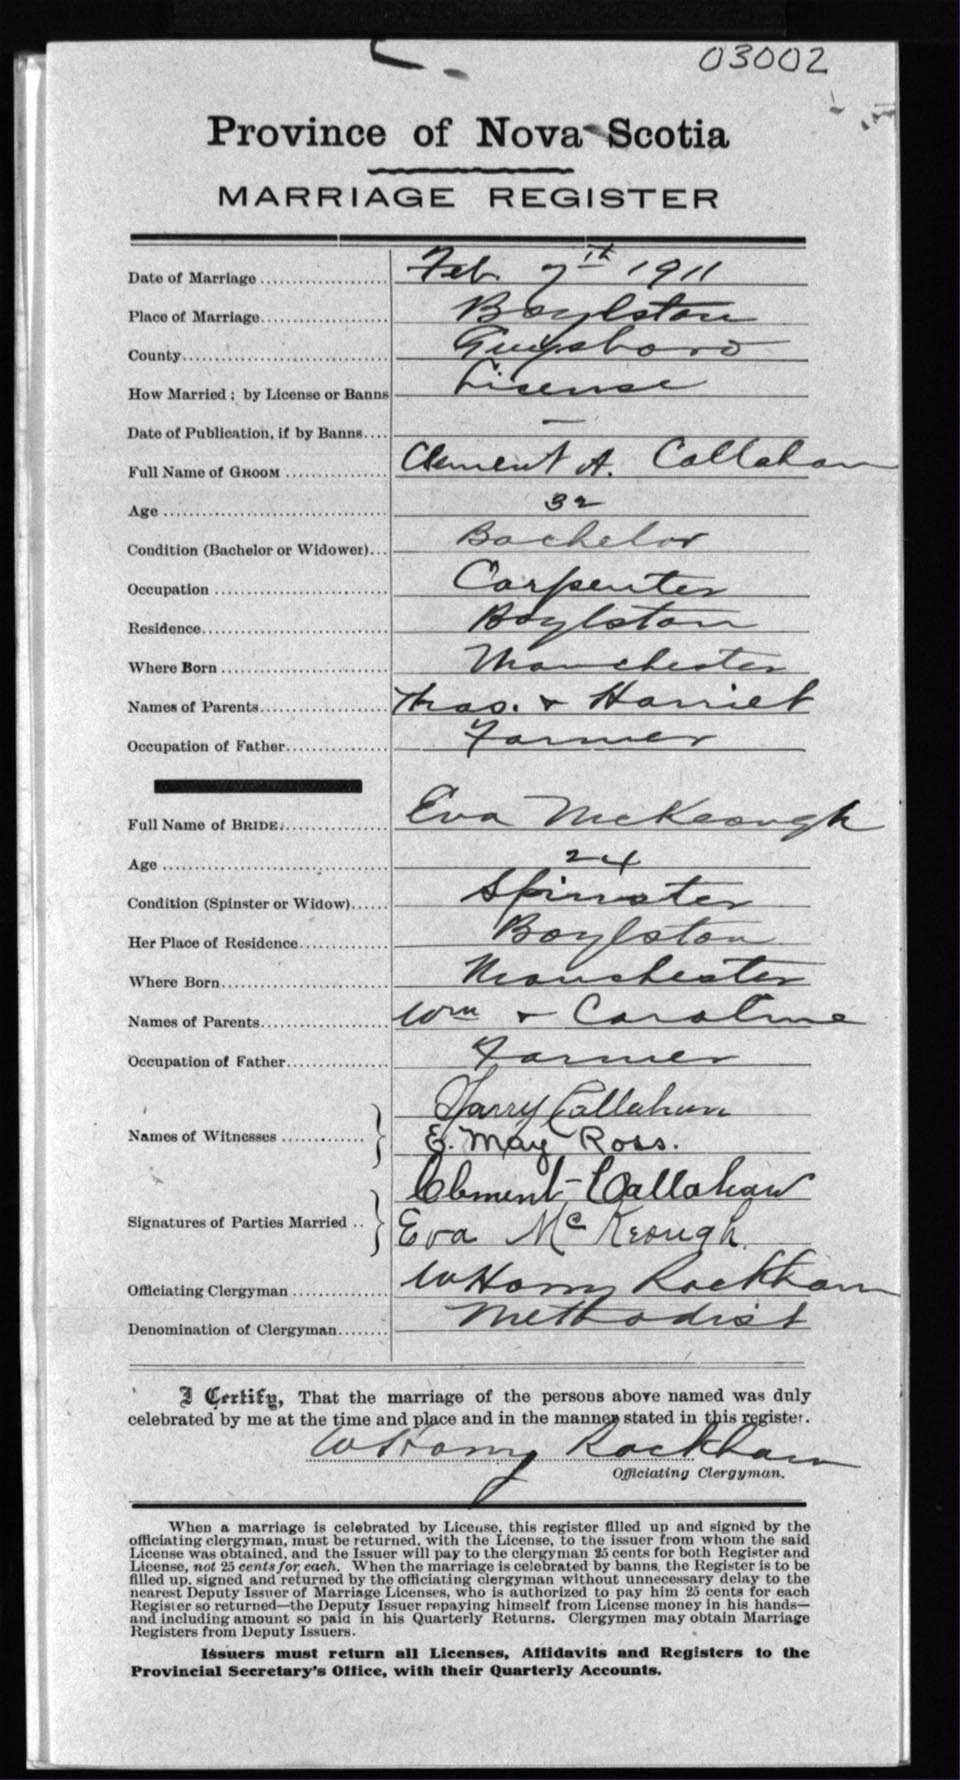 03002
Province of Nova Scotia
MARRIAGE REGISTER
Date of Marriage .................... Feb. 7th 1911
Place of Marriage.................... Boylston
County.................... Guysboro
How Married : by License or Banns License
Date of Publication, if by Banns.... —
Full Name of GROOM .............. Clement A. Callahan
Age .................... 32
Condition (Bachelor or Widower)... Bachelor
Occupation .................... Carpenter
Residence.................... Boylston
Where Born .................... Manchester
Names of Parents.................... Thos. + Harriet
Occupation of Father.............. Farmer
Full Name of BRIDE.............. Eva McKeough
Age .................... 24
Condition (Spinster or Widow)...... Spinster
Her Place of Residence............. Boylston
Where Born.................... Manchester
Names of Parents.................... Wm + Caroline
Occupation of Father.............. Farmer
Names of Witnesses ............. } Harry Callahan
E. May Ross.
Signatures of Parties Married .. } Clement Callahan
Eva McKeough.
Officiating Clergyman .............. W Harry Rackham
Denomination of Clergyman........ Methodist
I Certify, That the marriage of the persons above named was duly
celebrated by me at the time and place and in the manner stated in this register.
W Harry Rackham
Officiating Clergyman.
When a marriage is celebrated by License, this register filled up and signed by the
officiating clergyman, must be returned, with the License, to the issuer from whom the said
License was obtained, and the Issuer will pay to the clergyman 25 cents for both Register and
License, not 25 cents for each. When the marriage is celebrated by banns, the Register is to be
filled up, signed and returned by the officiating clergyman without unnecessary delay to the
nearest Deputy Issuer of Marriage Licenses, who is authorized to pay him 25 cents for each
Register so returned—the Deputy Issuer repaying himself from License money in his hands—
and including amount so paid in his Quarterly Returns. Clergymen may obtain Marriage
Registers from Deputy Issuers.
Issuers must return all Licenses, Affidavits and Registers to the
Provincial Secretary's Office, with their Quarterly Accounts.